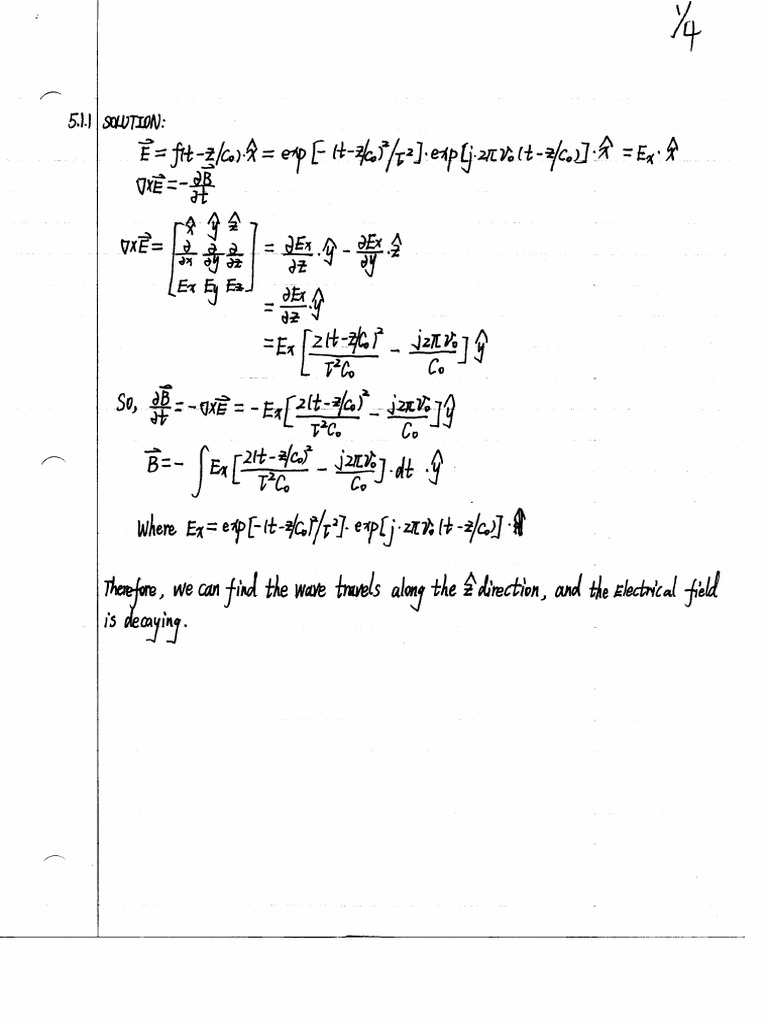 1/4
5.1.1 SOLUTION:
E⃗ = f(t-z/c₀)·x̂ = exp[-(t-z/c₀)²/τ²]·exp[j·2πν₀(t-z/c₀)]·x̂ = Eₓ·x̂
∇×E⃗ = -∂B⃗/∂t
∇×E⃗ = [x̂ ŷ ẑ; ∂/∂x ∂/∂y ∂/∂z; Ex Ey Ez] = ∂Ex/∂z·ŷ - ∂Ex/∂y·ẑ
= ∂Ex/∂z·ŷ
= Ex[2(t-z/c₀)²/τ²c₀ - j2πν₀/c₀]ŷ
So, ∂B⃗/∂t = -∇×E⃗ = -Ex[2(t-z/c₀)²/τ²c₀ - j2πν₀/c₀]ŷ
B⃗ = -∫Ex[2(t-z/c₀)²/τ²c₀ - j2πν₀/c₀]·dt·ŷ
Where Ex = exp[-(t-z/c₀)²/τ²]·exp[j·2πν₀(t-z/c₀)]·
Therefore, we can find the wave travels along the ẑ direction, and the Electrical field
is decaying.